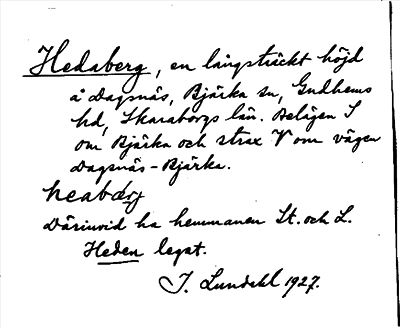 Hedaberg, en långsträckt höjd
å Dagsnäs, Bjärka sn, Gudhems
hd, Skaraborgs län. Belägen S
om Bjärka och strax V om vägen
Dagsnäs-Bjärka.
heabærj
Därinvid ha hemmanen St. och L.
Heden legat.
J. Lundahl 1927.